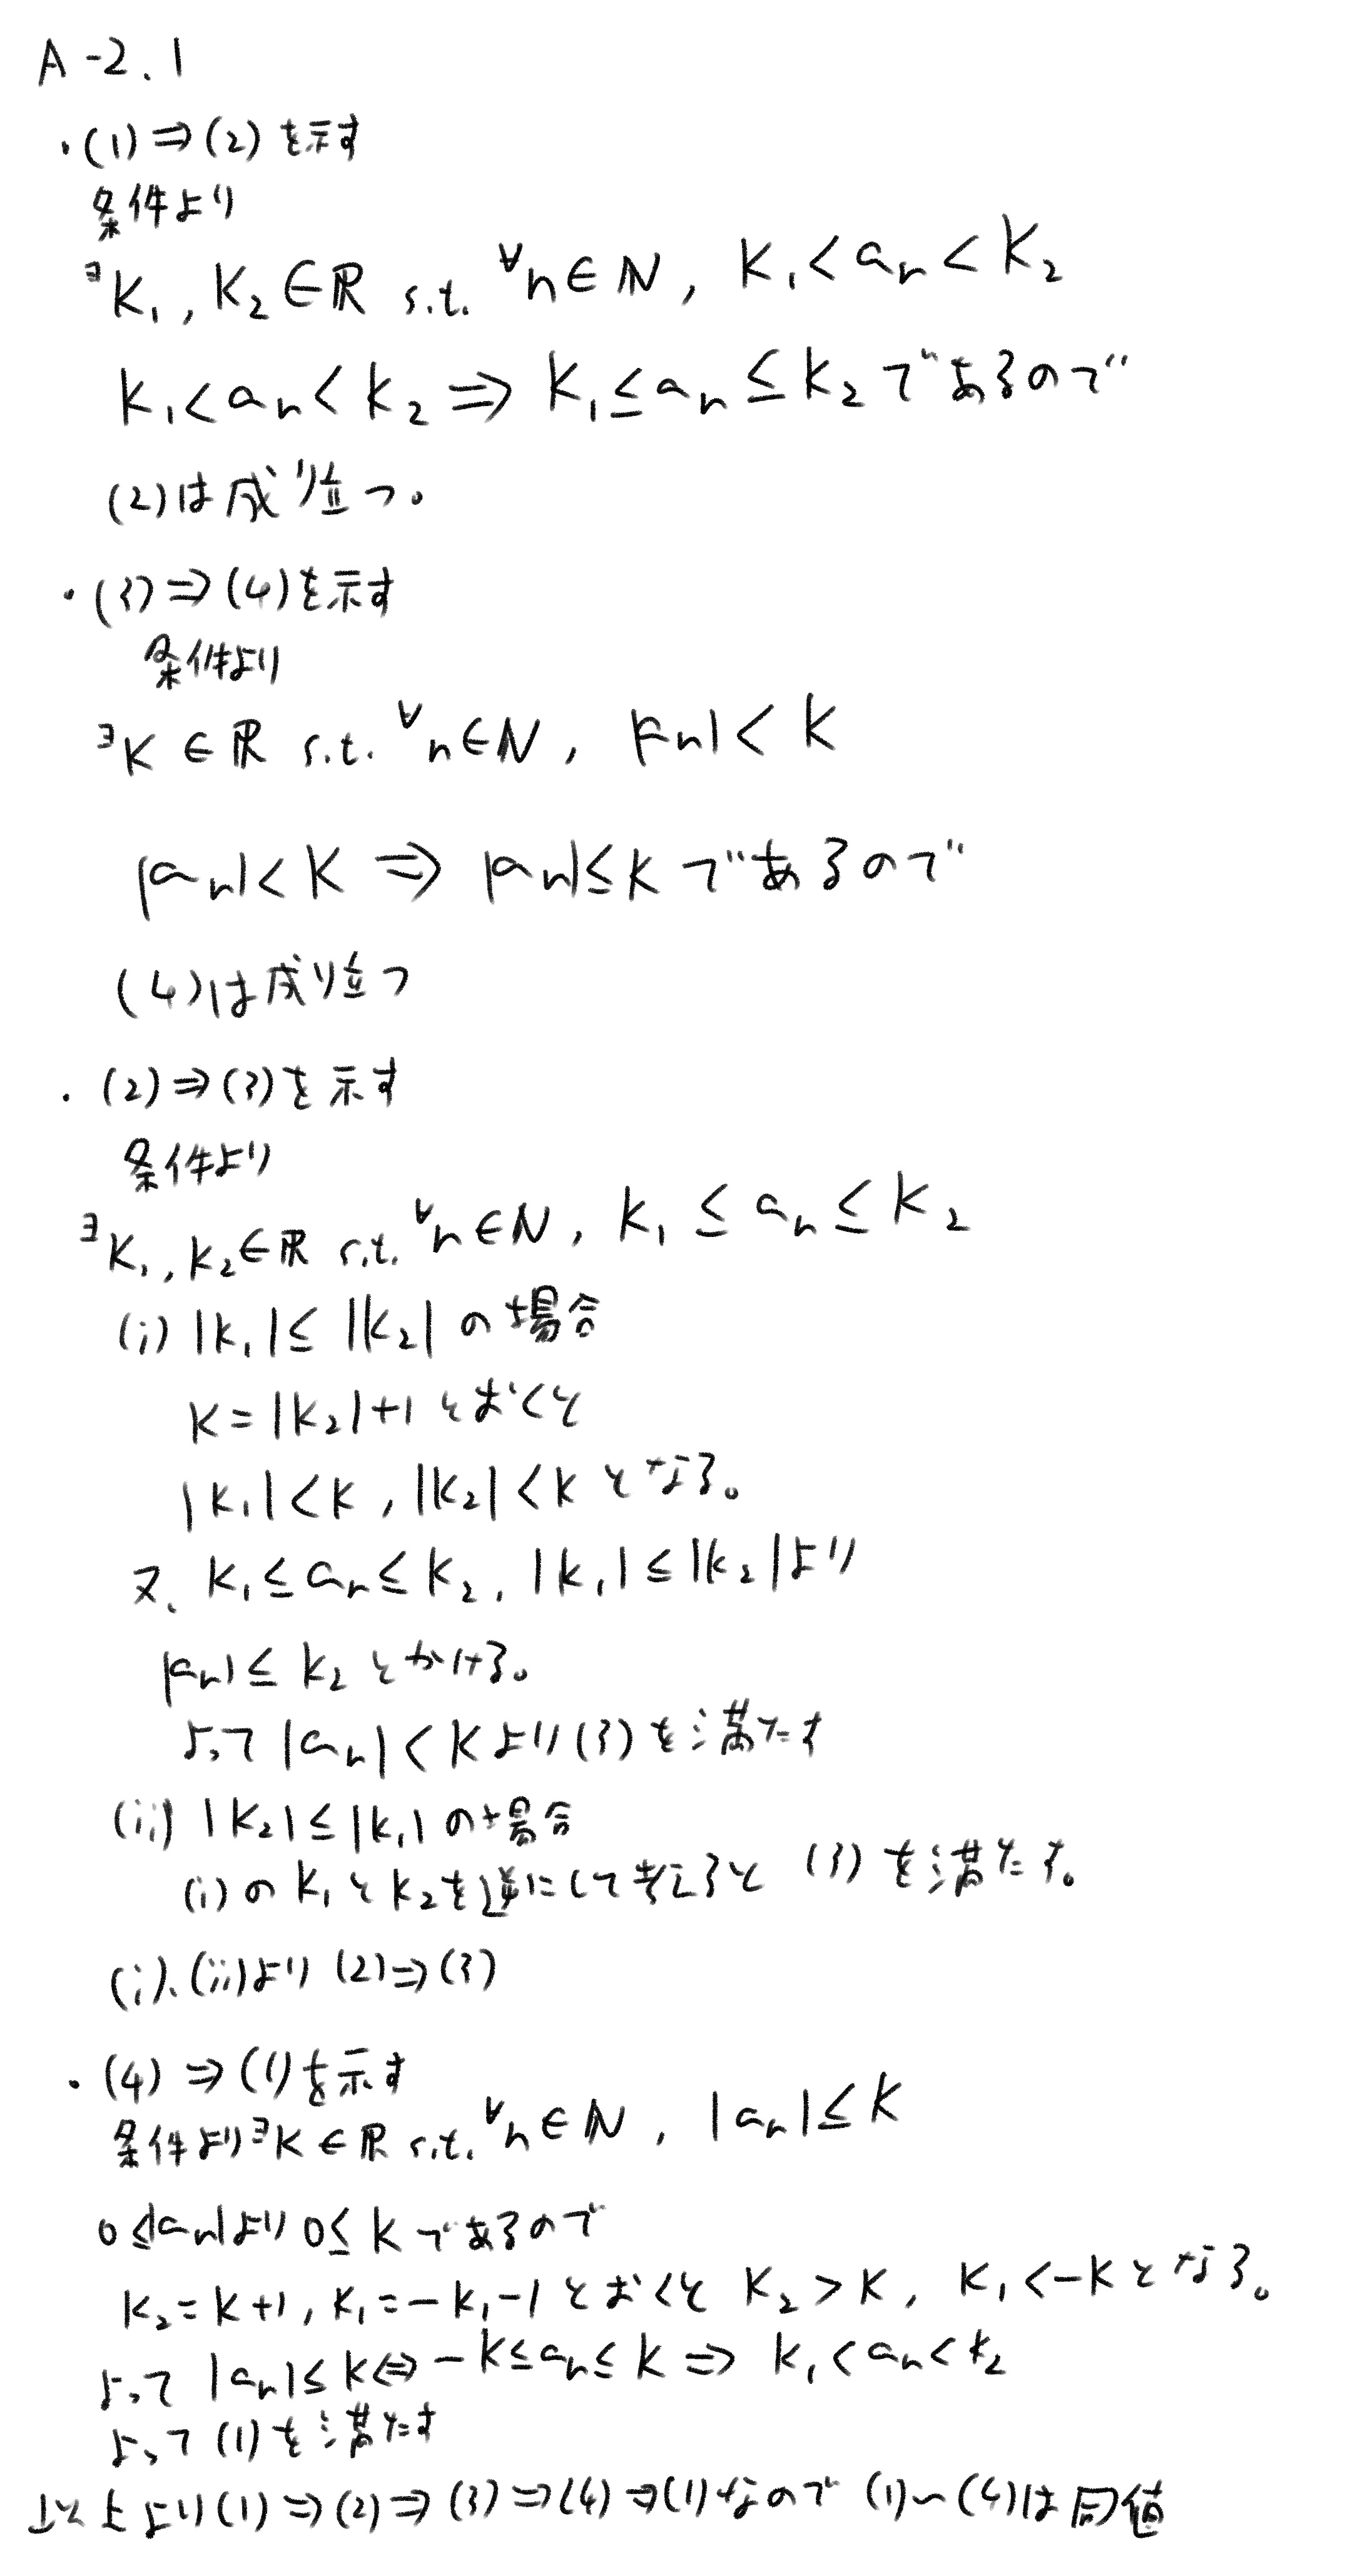 A-2.1
・(1)⇒(2)を示す
条件より
∃K₁, K₂∈ℝ s.t. ∀n∈ℕ, K₁<aₙ<K₂
K₁<aₙ<K₂ ⇒ K₁≤aₙ≤K₂であるので
(2)は成り立つ。
・(3)⇒(4)を示す
条件より
∃K∈ℝ s.t. ∀n∈ℕ, |aₙ|<K
|aₙ|<K ⇒ |aₙ|≤Kであるので
(4)は成り立つ
・(2)⇒(3)を示す
条件より
∃K₁, K₂∈ℝ s.t. ∀n∈ℕ, K₁≤aₙ≤K₂
(i) |K₁|≤|K₂|の場合
K=|K₂|+1とおくと
|K₁|<K, |K₂|<Kとなる。
又、K₁≤aₙ≤K₂, |K₁|≤|K₂|より
|aₙ|≤K₂とかける。
よって|aₙ|<Kより(3)を満たす
(ii) |K₂|≤|K₁|の場合
(i)のK₁とK₂を逆にして考えると (3)を満たす。
(i)、(ii)より(2)⇒(3)
・(4)⇒(1)を示す
条件より∃K∈ℝ s.t. ∀n∈ℕ, |aₙ|≤K
0≤|aₙ|より0≤Kであるので
K₂=K+1, K₁=-K₁-1とおくと K₂>K, K₁<-Kとなる。
よって |aₙ|≤K⇔-K≤aₙ≤K ⇒ K₁<aₙ<K₂
よって(1)を満たす
以上より(1)⇒(2)⇒(3)⇒(4)⇒(1)なので (1)~(4)は同値